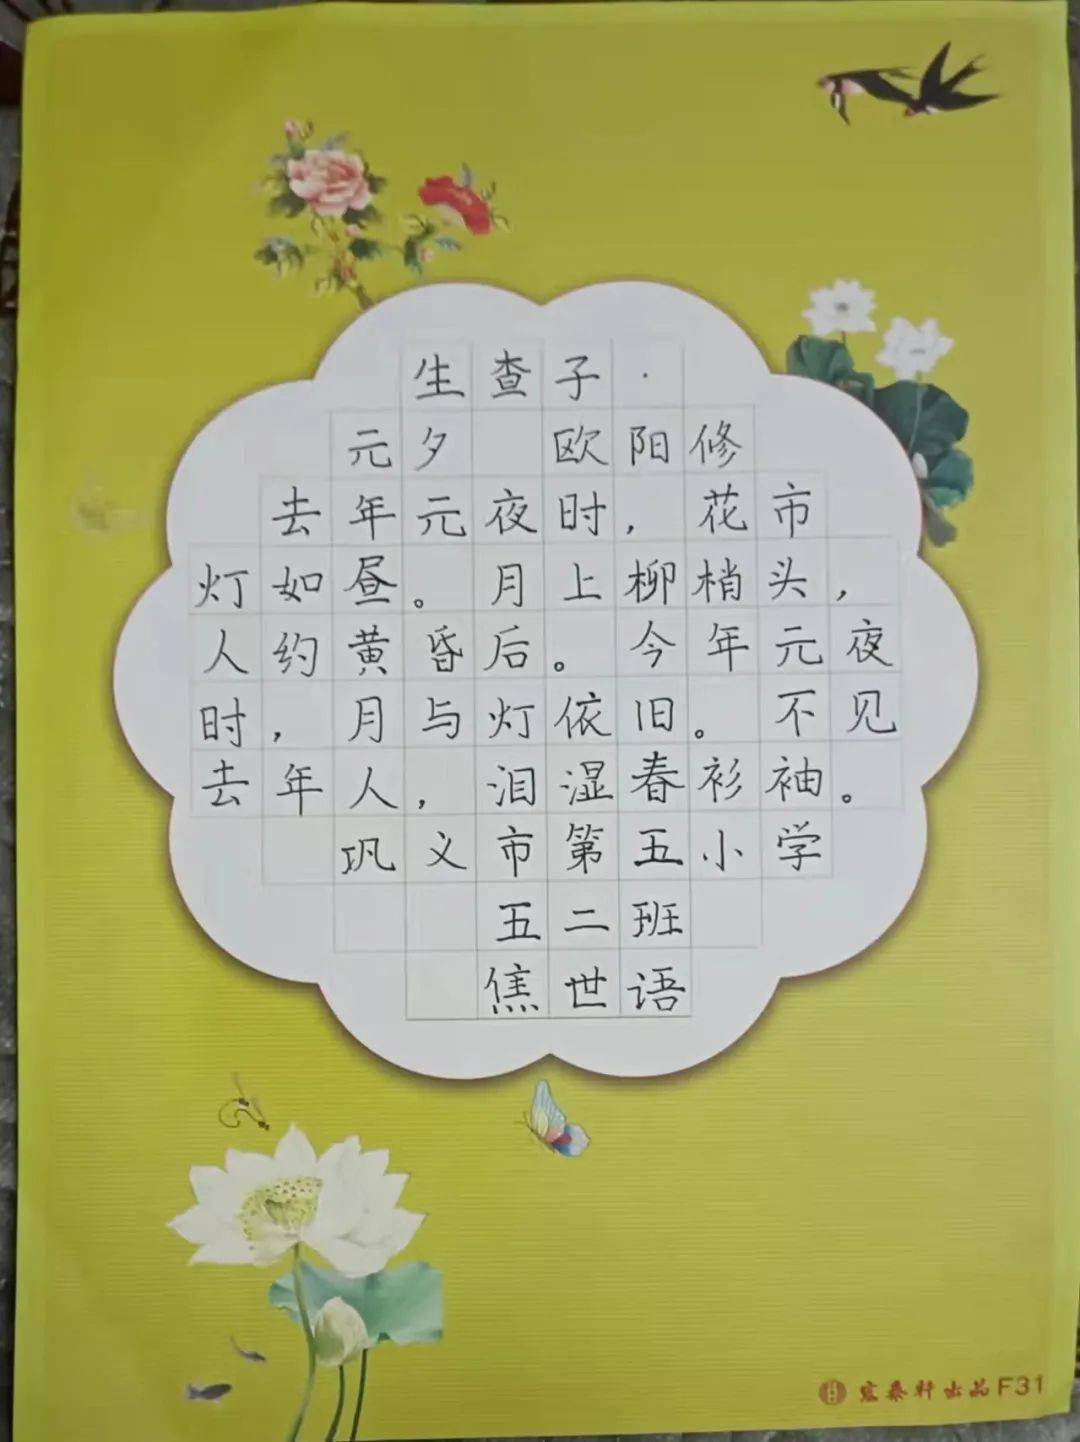 生查子·
元夕 欧阳修
去年元夜时，花市
灯如昼。月上柳梢头，
人约黄昏后。今年元夜
时，月与灯依旧。不见
去年人，泪湿春衫袖。
巩义市第五小学
五二班
焦世语
宏泰轩出品F31